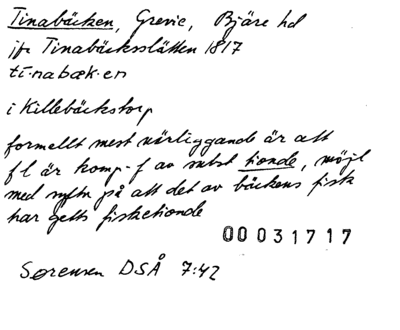 Tinabäcken, Grevie, Bjäre hd
jfr Tinabäcksslätten 1817
tī·nabæk·en
i Killebäckstorp
formellt mest närliggande är att
fl är komp-f av subst tionde, möjl
med syftn på att det av bäckens fisk
har getts fisketionde
00031717
Sørensen DSÅ 7:42